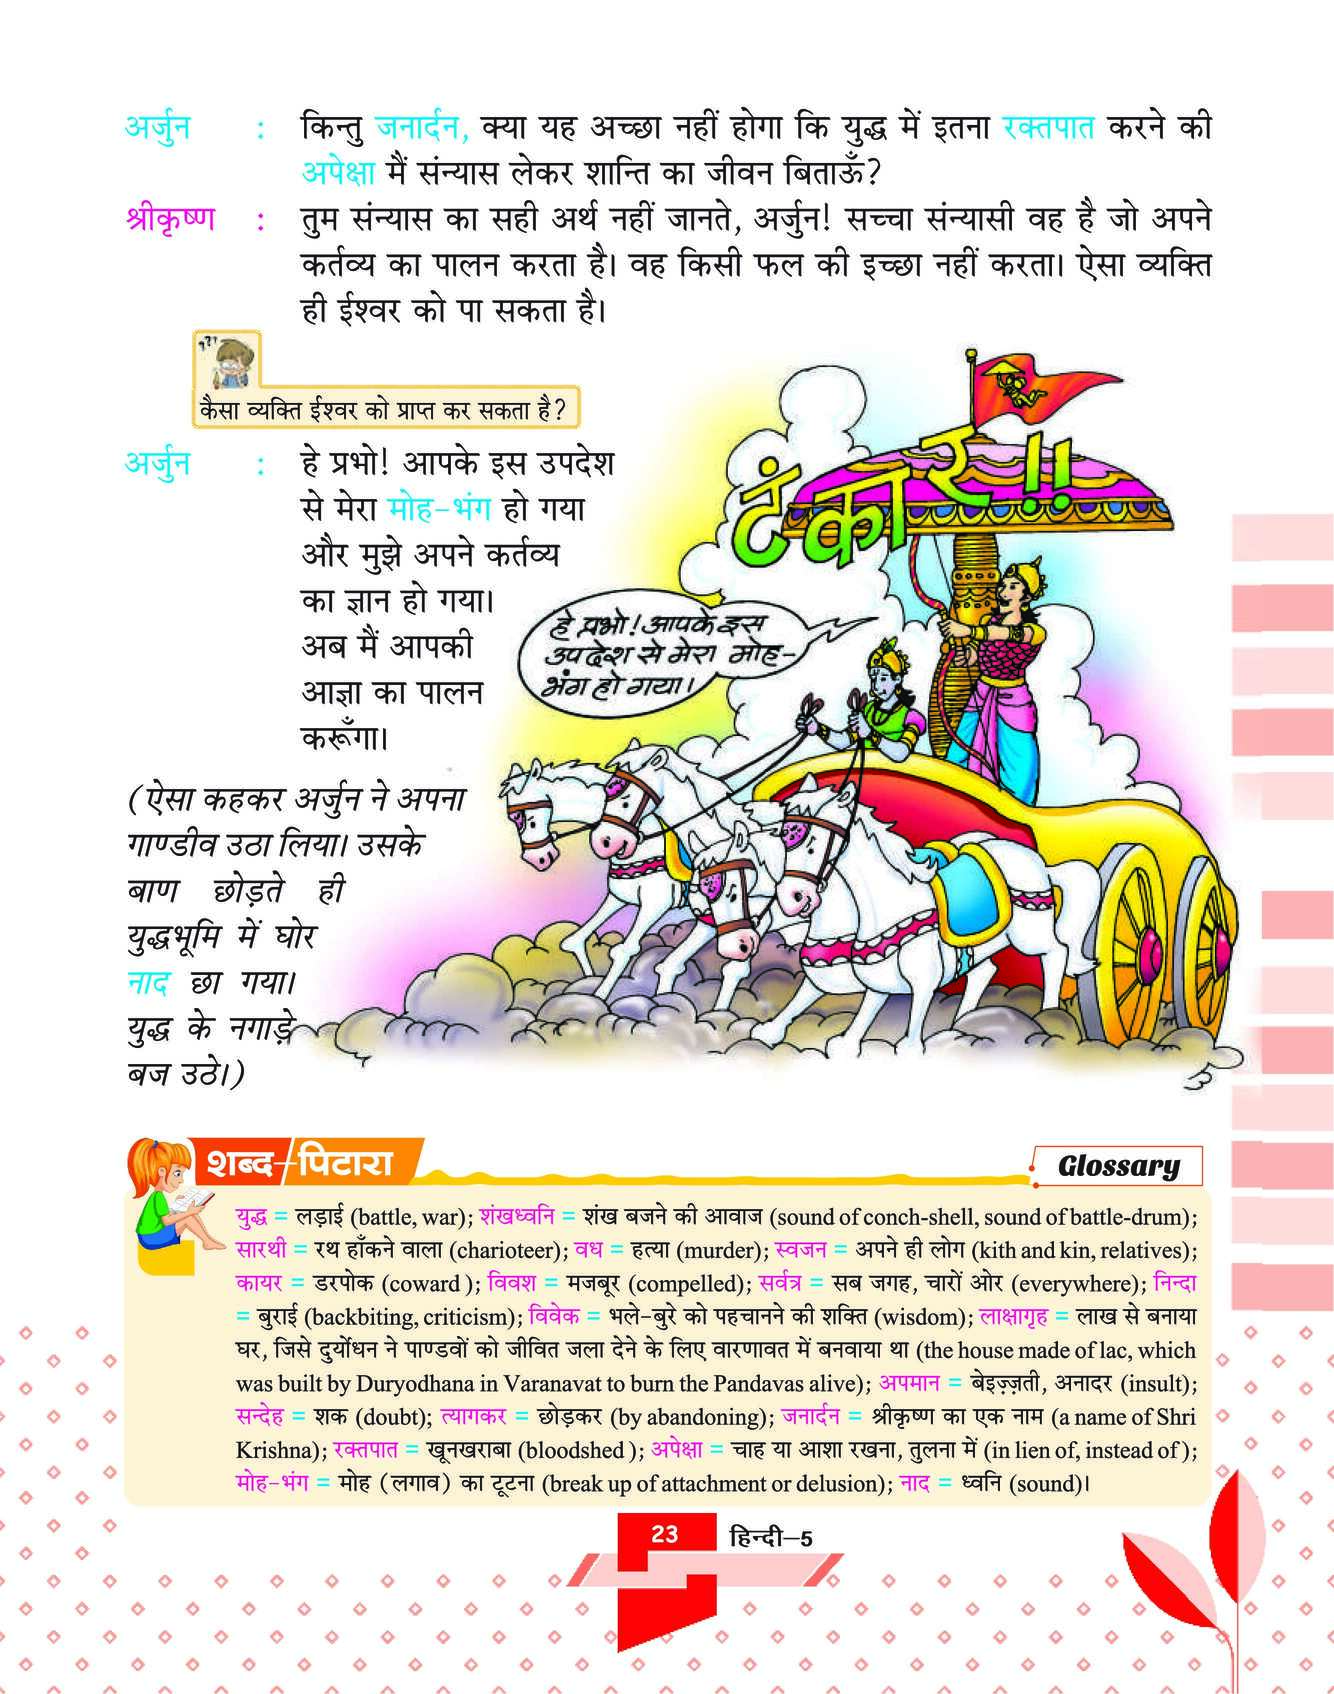 अर्जुन : किन्तु जनार्दन, क्या यह अच्छा नहीं होगा कि युद्ध में इतना रक्तपात करने की
अपेक्षा मैं संन्यास लेकर शान्ति का जीवन बिताऊँ?
श्रीकृष्ण : तुम संन्यास का सही अर्थ नहीं जानते, अर्जुन! सच्चा संन्यासी वह है जो अपने
कर्तव्य का पालन करता है। वह किसी फल की इच्छा नहीं करता। ऐसा व्यक्ति
ही ईश्वर को पा सकता है।
???
कैसा व्यक्ति ईश्वर को प्राप्त कर सकता है?
अर्जुन : हे प्रभो! आपके इस उपदेश
से मेरा मोह-भंग हो गया
और मुझे अपने कर्तव्य
का ज्ञान हो गया।
अब मैं आपकी
आज्ञा का पालन
करूँगा।
टंकार!!
हे प्रभो! आपके इस
उपदेश से मेरा मोह-
भंग हो गया।
(ऐसा कहकर अर्जुन ने अपना
गाण्डीव उठा लिया। उसके
बाण छोड़ते ही
युद्धभूमि में घोर
नाद छा गया।
युद्ध के नगाड़े
बज उठे।)
शब्द-पिटारा Glossary
युद्ध = लड़ाई (battle, war); शंखध्वनि = शंख बजने की आवाज (sound of conch-shell, sound of battle-drum);
सारथी = रथ हाँकने वाला (charioteer); वध = हत्या (murder); स्वजन = अपने ही लोग (kith and kin, relatives);
कायर = डरपोक (coward ); विवश = मजबूर (compelled); सर्वत्र = सब जगह, चारों ओर (everywhere); निन्दा
= बुराई (backbiting, criticism); विवेक = भले-बुरे को पहचानने की शक्ति (wisdom); लाक्षागृह = लाख से बनाया
घर, जिसे दुर्योधन ने पाण्डवों को जीवित जला देने के लिए वारणावत में बनवाया था (the house made of lac, which
was built by Duryodhana in Varanavat to burn the Pandavas alive); अपमान = बेइज़्ज़ती, अनादर (insult);
सन्देह = शक (doubt); त्यागकर = छोड़कर (by abandoning); जनार्दन = श्रीकृष्ण का एक नाम (a name of Shri
Krishna); रक्तपात = खूनखराबा (bloodshed ); अपेक्षा = चाह या आशा रखना, तुलना में (in lien of, instead of );
मोह-भंग = मोह (लगाव) का टूटना (break up of attachment or delusion); नाद = ध्वनि (sound)।
23 हिन्दी–5